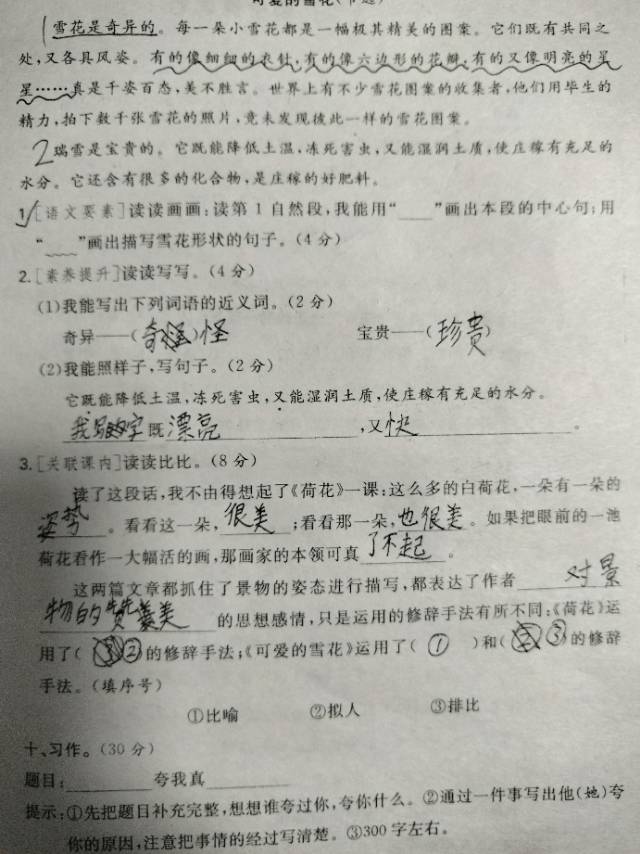 可爱的雪花(节选)
1 雪花是奇异的。每一朵小雪花都是一幅极其精美的图案。它们既有共同之
处,又各具风姿。有的像细细的衣针,有的像六边形的花瓣,有的又像明亮的星
星……真是千姿百态,美不胜言。世界上有不少雪花图案的收集者,他们用毕生的
精力,拍下数千张雪花的照片,竟未发现彼此一样的雪花图案。
2 瑞雪是宝贵的。它既能降低土温,冻死害虫,又能湿润土质,使庄稼有充足的
水分。它还含有很多的化合物,是庄稼的好肥料。
1.[语文要素]读读画画:读第1自然段,我能用“____”画出本段的中心句;用
“____”画出描写雪花形状的句子。(4分)
2.[素养提升]读读写写。(4分)
(1)我能写出下列词语的近义词。(2分)
奇异——(奇怪)怪 宝贵——(珍贵)
(2)我能照样子,写句子。(2分)
它既能降低土温,冻死害虫,又能湿润土质,使庄稼有充足的水分。
我写的字既漂亮,又快。
3.[关联课内]读读比比。(8分)
读了这段话,我不由得想起了《荷花》一课:这么多的白荷花,一朵有一朵的
姿势。看看这一朵,很美;看看那一朵,也很美。如果把眼前的一池
荷花看作一大幅活的画,那画家的本领可真了不起。
这两篇文章都抓住了景物的姿态进行描写,都表达了作者对景
物的赞美的思想感情,只是运用的修辞手法有所不同:《荷花》运
用了(②)的修辞手法;《可爱的雪花》运用了(①)和(③)的修辞
手法。(填序号)
①比喻 ②拟人 ③排比
十、习作。(30分)
题目:____夸我真____
提示:①先把题目补充完整,想想谁夸过你,夸你什么。②通过一件事写出他(她)夸
你的原因,注意把事情的经过写清楚。③300字左右。